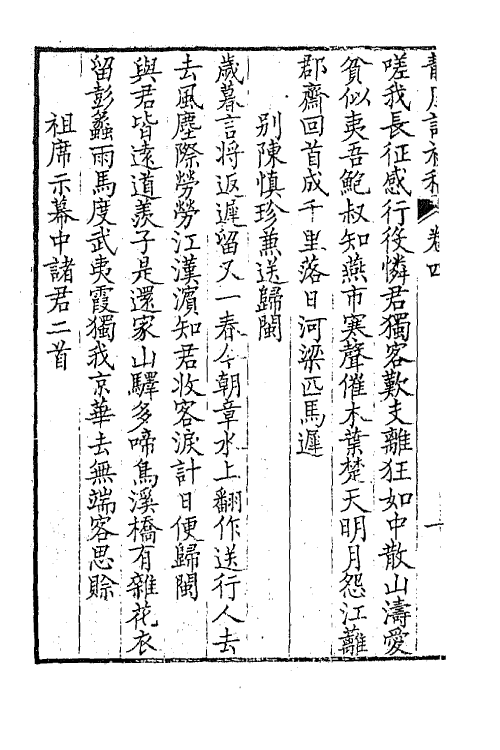 卷四
嗟我長征感行役憐君獨客歎支離狂如中散山濤愛
貧似夷吾鮑叔知燕市寒聲催木葉楚天明月怨江蘺
郡齋回首成千里落日河梁匹馬遲
別陳慎珍兼送歸閩
歲暮言將返遲留又一春今朝章水上翻作送行人去
去風塵際勞勞江漢濵知君收客淚計日便歸閩
與君皆遠道羨子是還家山驛多啼鳥溪橋有雜花衣
留彭蠡雨馬度武夷霞獨我京華去無端客思賒
祖席示幕中諸君二首